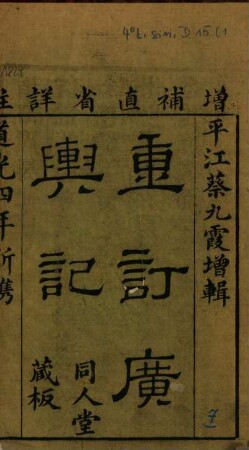 4° L. sin. D 15 (1
增補直省詳註
平江蔡九霞增輯
重訂廣
輿記
同人堂
藏板
道光四年新鐫